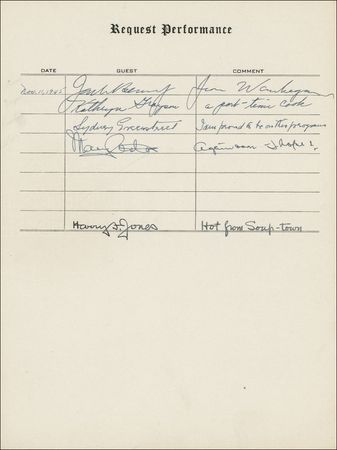 Request Performance
DATE GUEST COMMENT
Nov. 11, 1945 Jack Benny from Waukegan
Kathryn Grayson a part-time cook
Sydney Greenstreet I am proud to be on this program
again soon I hope!
Harry D. Jones Hot from Soup-town